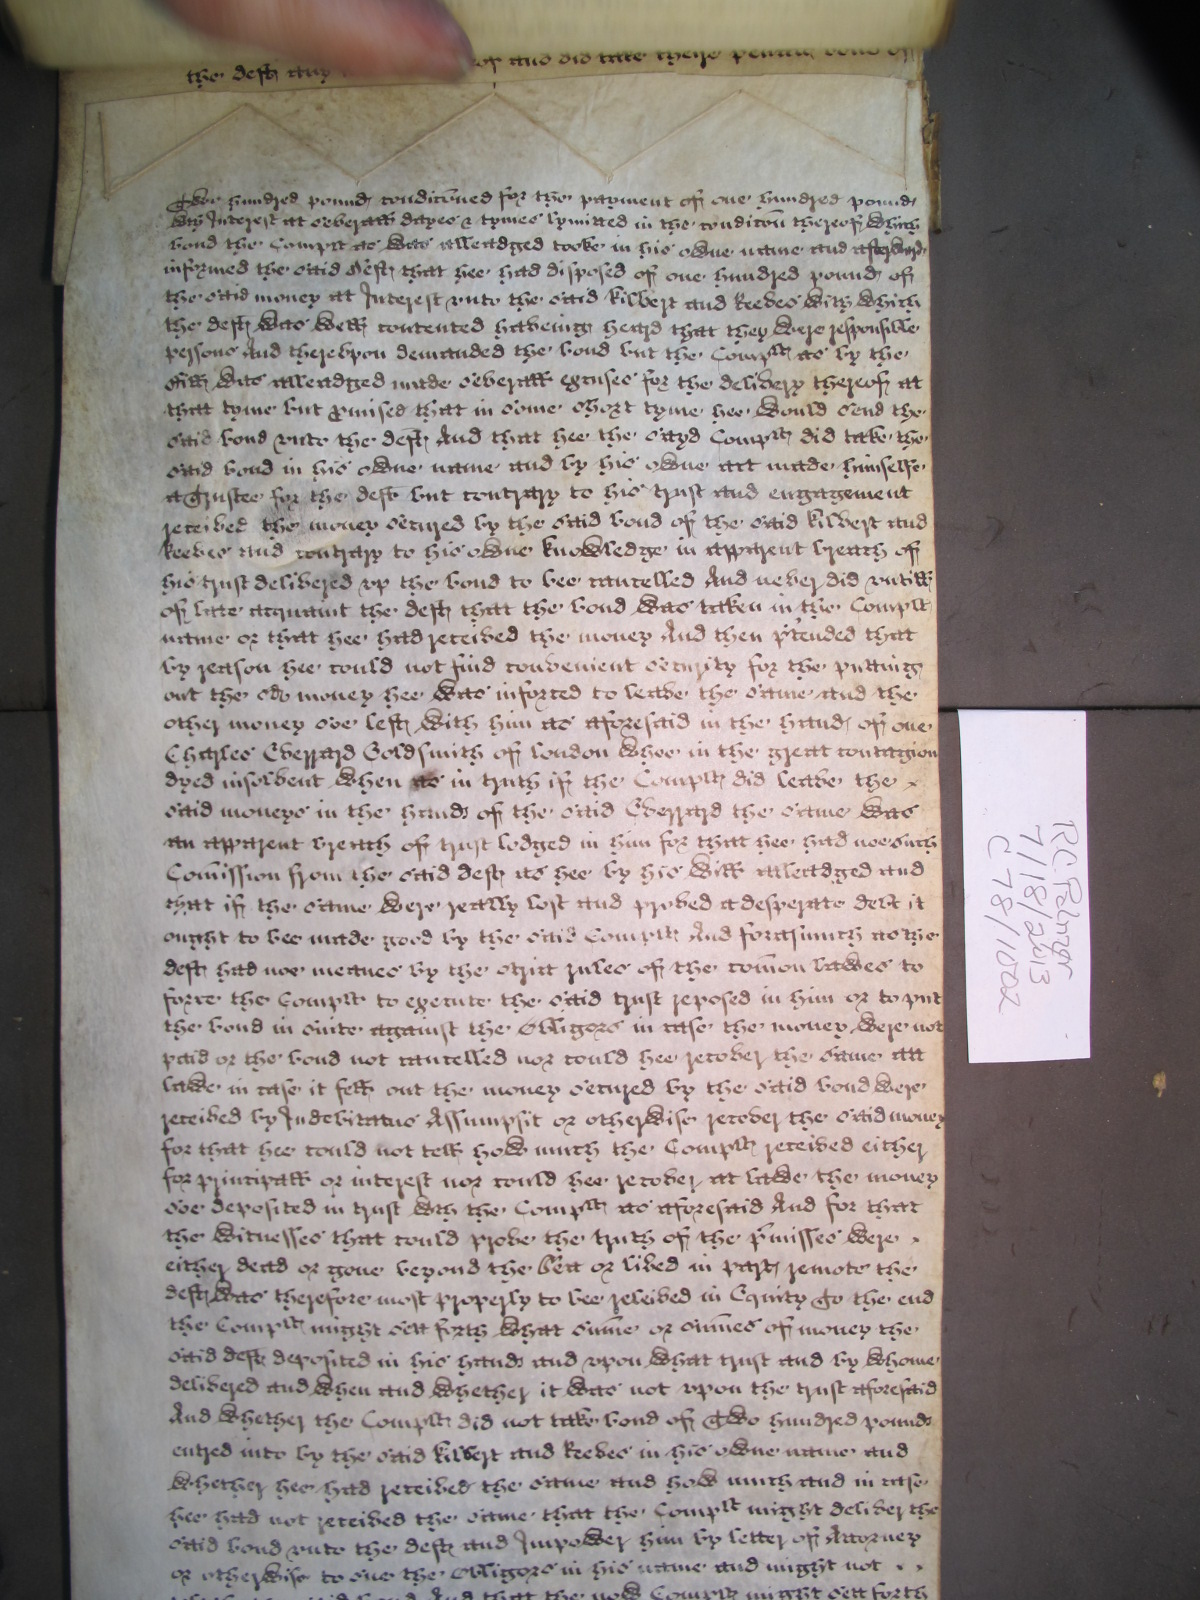 the deft any of and did take theire penall bond of
Two hundred pounds conditioned for the payment of one hundred pounds
wth Interest at severall dayes & tymes lymitted in the condicōn thereof Which
bond the Complt as was alleadged tooke in his owne name and afterwards
informed the said deft that hee had disposed of one hundred pounds of
the said money at Interest unto the said Kilbert and Reeves With Which
the deft Was Well contented haveing heard that they Were responsible
persons And thereupon demanded the bond but the Complt as by the
Bill Was alleadged made severall excuses for the delivery thereof at
that tyme but pmised that in some short tyme hee Would send the
said bond unto the deft And that hee the sayd Complt did take the
said bond in his owne name and by his owne act made himselfe
a Trustee for the deft but contrary to his trust and engagement
received the money secured by the said bond of the said Kilbert and
Reeves and contrary to his owne knowledge in apparent breach of
his trust delivered up the bond to bee cancelled And never did untill
of late acquaint the deft that the bond Was taken in the Complts
name or that hee had received the money And then p'tended that
by reason hee could not find convenient security for the putting
out the sd money hee Was inforced to leave the same and the
other money soe left With him as aforesaid in the hands of one
Charles Everrard Goldsmith of London Whoe in the great contagion
dyed insolvent When as in truth if the Complt did leave the
said moneys in the hands of the said Everrard the same Was
an apparent breach of trust lodged in him for that hee had noe such
Comission from the said deft as hee by his Bill alleadged and
that if the same Were really lost and proved a desperate debt it
ought to bee made good by the said Complt And forasmuch as the
deft had noe meanes by the strict rules of the comon lawes to
force the Complt to execute the said trust reposed in him or to putt
the bond in suite against the Obligors in case the money Were not
paid or the bond not cancelled nor could hee recover the same att
lawe in case it fell out the money secured by the said bond Were
received by Indebitatus Assumpsit or otherwise recover the said money
for that hee could not tell how much the Complt received either
for principall or interest nor could hee recover at lawe the money
soe deposited in trust wth the Complt as aforesaid And for that
the Witnesses that could prove the truth of the p'misses Were
either dead or gone beyond the Sea or lived in parts remote the
deft Was therefore most properly to bee releived in Equity To the end
the Complt might sett forth What sume or sumes of money the
said deft deposited in his hands and upon What trust and by Whome
delivered and When and Whether it Was not upon the trust aforesaid
And Whether the Complt did not take bond of Two hundred pounds
entred into by the said Kilbert and Reeves in his owne name and
Whether hee had received the same and how much and in case
hee had not received the same that the Complt might deliver the
said bond unto the deft and Impower him by letter of Attorney
or otherwise to sue the Obligors in his name and might not
And that the now Complt might sett forth
RC Palmer
7/18/2013
C 78/1002